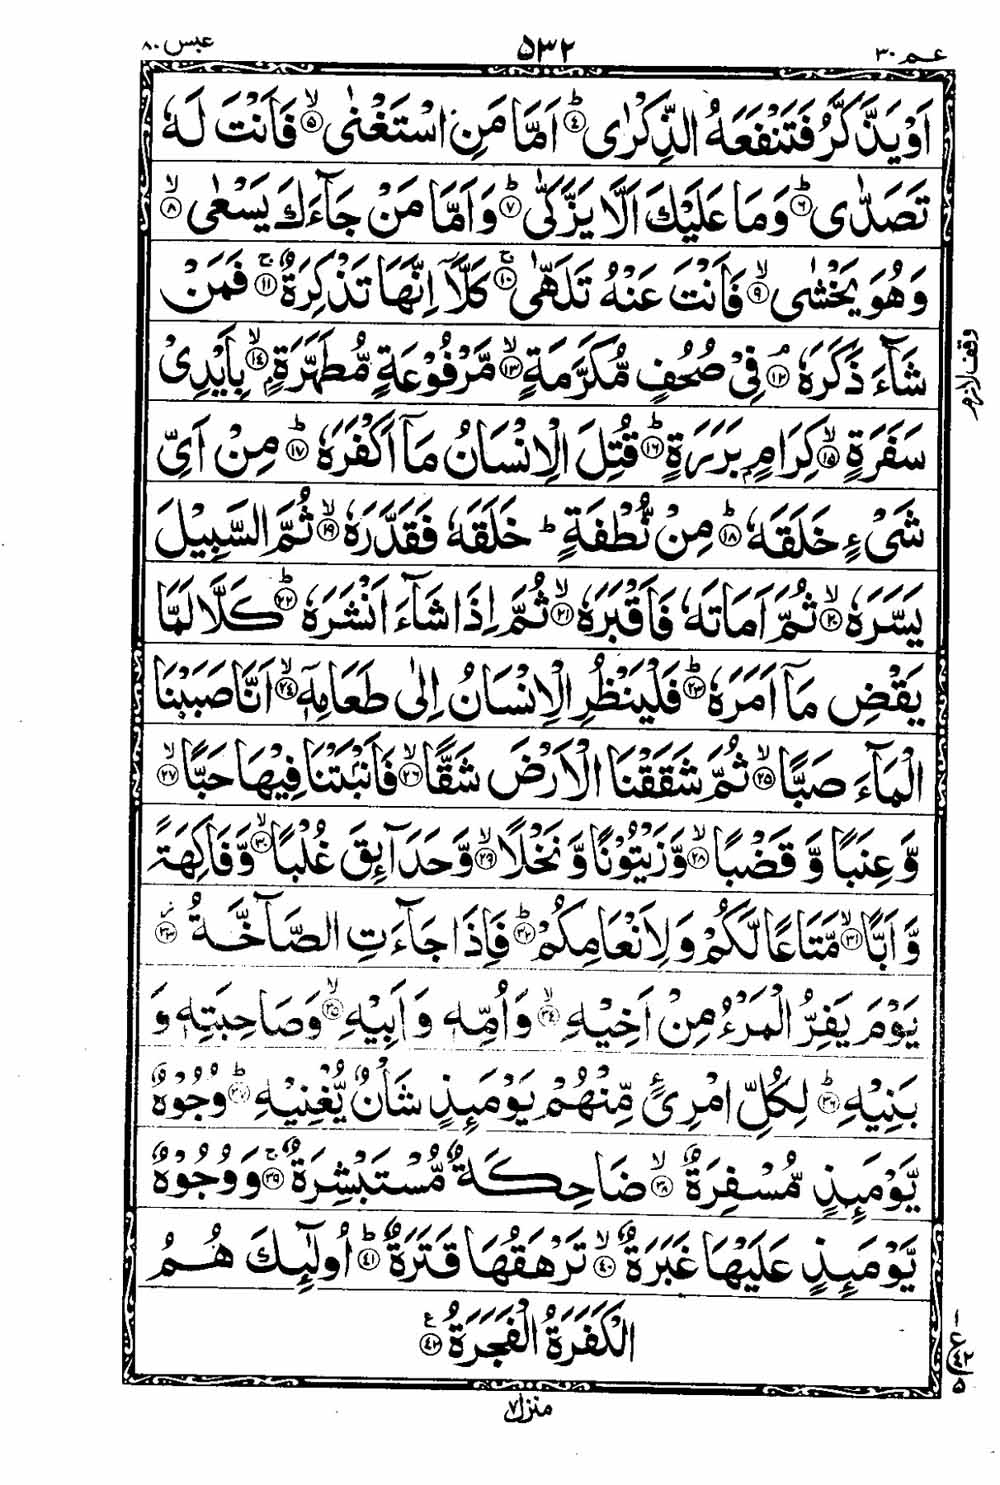 عمّ ٣٠
۵۳۲
عبس ٨٠
اَوۡ يَذَّكَّرُ فَتَنۡفَعَهُ الذِّكۡرٰى ؕ‏﴿۴﴾ اَمَّا مَنِ اسۡتَغۡنٰى ۙ‏﴿۵﴾ فَاَنۡتَ لَهٗ
تَصَدّٰى ؕ‏﴿۶﴾ وَمَا عَلَيۡكَ اَلَّا يَزَّكّٰى ؕ‏﴿۷﴾ وَاَمَّا مَنۡ جَآءَكَ يَسۡعٰى ۙ‏﴿۸﴾
وَهُوَ يَخۡشٰى ۙ‏﴿۹﴾ فَاَنۡتَ عَنۡهُ تَلَهّٰى‌ ۚ‏﴿۱۰﴾ كَلَّاۤ اِنَّهَا تَذۡكِرَةٌ ۚ‏﴿۱۱﴾ فَمَنۡ
شَآءَ ذَكَرَهٗ‌ ۘ‏﴿۱۲﴾ فِىۡ صُحُفٍ مُّكَرَّمَةٍ ۙ‏﴿۱۳﴾ مَّرۡفُوۡعَةٍ مُّطَهَّرَةٍ ۭۙ‏﴿۱۴﴾ بِاَيۡدِىۡ
سَفَرَةٍ ۙ‏﴿۱۵﴾ كِرَامٍۭ بَرَرَةٍ ؕ‏﴿۱۶﴾ قُتِلَ الۡاِنۡسَانُ مَاۤ اَكۡفَرَهٗ ؕ‏﴿۱۷﴾ مِنۡ اَىِّ
شَىۡءٍ خَلَقَهٗ ؕ‏﴿۱۸﴾ مِنۡ نُّطۡفَةٍ ؕ خَلَقَهٗ فَقَدَّرَهٗ ۙ‏﴿۱۹﴾ ثُمَّ السَّبِيۡلَ
يَسَّرَهٗ ۙ‏﴿۲۰﴾ ثُمَّ اَمَاتَهٗ فَاَقۡبَرَهٗ ۙ‏﴿۲۱﴾ ثُمَّ اِذَا شَآءَ اَنۡشَرَهٗ ؕ‏﴿۲۲﴾ كَلَّا لَمَّا
يَقۡضِ مَاۤ اَمَرَهٗ ؕ‏﴿۲۳﴾ فَلۡيَنۡظُرِ الۡاِنۡسَانُ اِلٰى طَعَامِهٖۤ ۙ‏﴿۲۴﴾ اَنَّا صَبَبۡنَا
الۡمَآءَ صَبًّا ۙ‏﴿۲۵﴾ ثُمَّ شَقَقۡنَا الۡاَرۡضَ شَقًّا ۙ‏﴿۲۶﴾ فَاَنۡۢبَتۡنَا فِيۡهَا حَبًّا ۙ‏﴿۲۷﴾
وَّعِنَبًا وَّقَضۡبًا ۙ‏﴿۲۸﴾ وَّزَيۡتُوۡنًا وَّنَخۡلًا ۙ‏﴿۲۹﴾ وَّحَدَآٮِٕقَ غُلۡبًا ۙ‏﴿۳۰﴾ وَّفَاكِهَةً
وَّاَبًّا ۙ‏﴿۳۱﴾ مَّتَاعًا لَّكُمۡ وَلِاَنۡعَامِكُمۡ ؕ‏﴿۳۲﴾ فَاِذَا جَآءَتِ الصَّآخَّةُ ۫‏﴿۳۳﴾
يَوۡمَ يَفِرُّ الۡمَرۡءُ مِنۡ اَخِيۡهِ ۙ‏﴿۳۴﴾ وَاُمِّهٖ وَاَبِيۡهِ ۙ‏﴿۳۵﴾ وَصَاحِبَتِهٖ وَ
بَنِيۡهِ ؕ‏﴿۳۶﴾ لِكُلِّ امۡرِىٴٍ مِّنۡهُمۡ يَوۡمَٮِٕذٍ شَاۡنٌ يُّغۡنِيۡهِ ؕ‏﴿۳۷﴾ وُجُوۡهٌ
يَّوۡمَٮِٕذٍ مُّسۡفِرَةٌ ۙ‏﴿۳۸﴾ ضَاحِكَةٌ مُّسۡتَبۡشِرَةٌ ۚ‏﴿۳۹﴾ وَوُجُوۡهٌ
يَّوۡمَٮِٕذٍ عَلَيۡهَا غَبَرَةٌ ۙ‏﴿۴۰﴾ تَرۡهَقُهَا قَتَرَةٌ ؕ‏﴿۴۱﴾ اُولٰٓٮِٕكَ هُمُ
الۡكَفَرَةُ الۡفَجَرَةُ‏﴿۴۲﴾
وقف لازم
۱
ع
۴۲
۵
منزل ۷